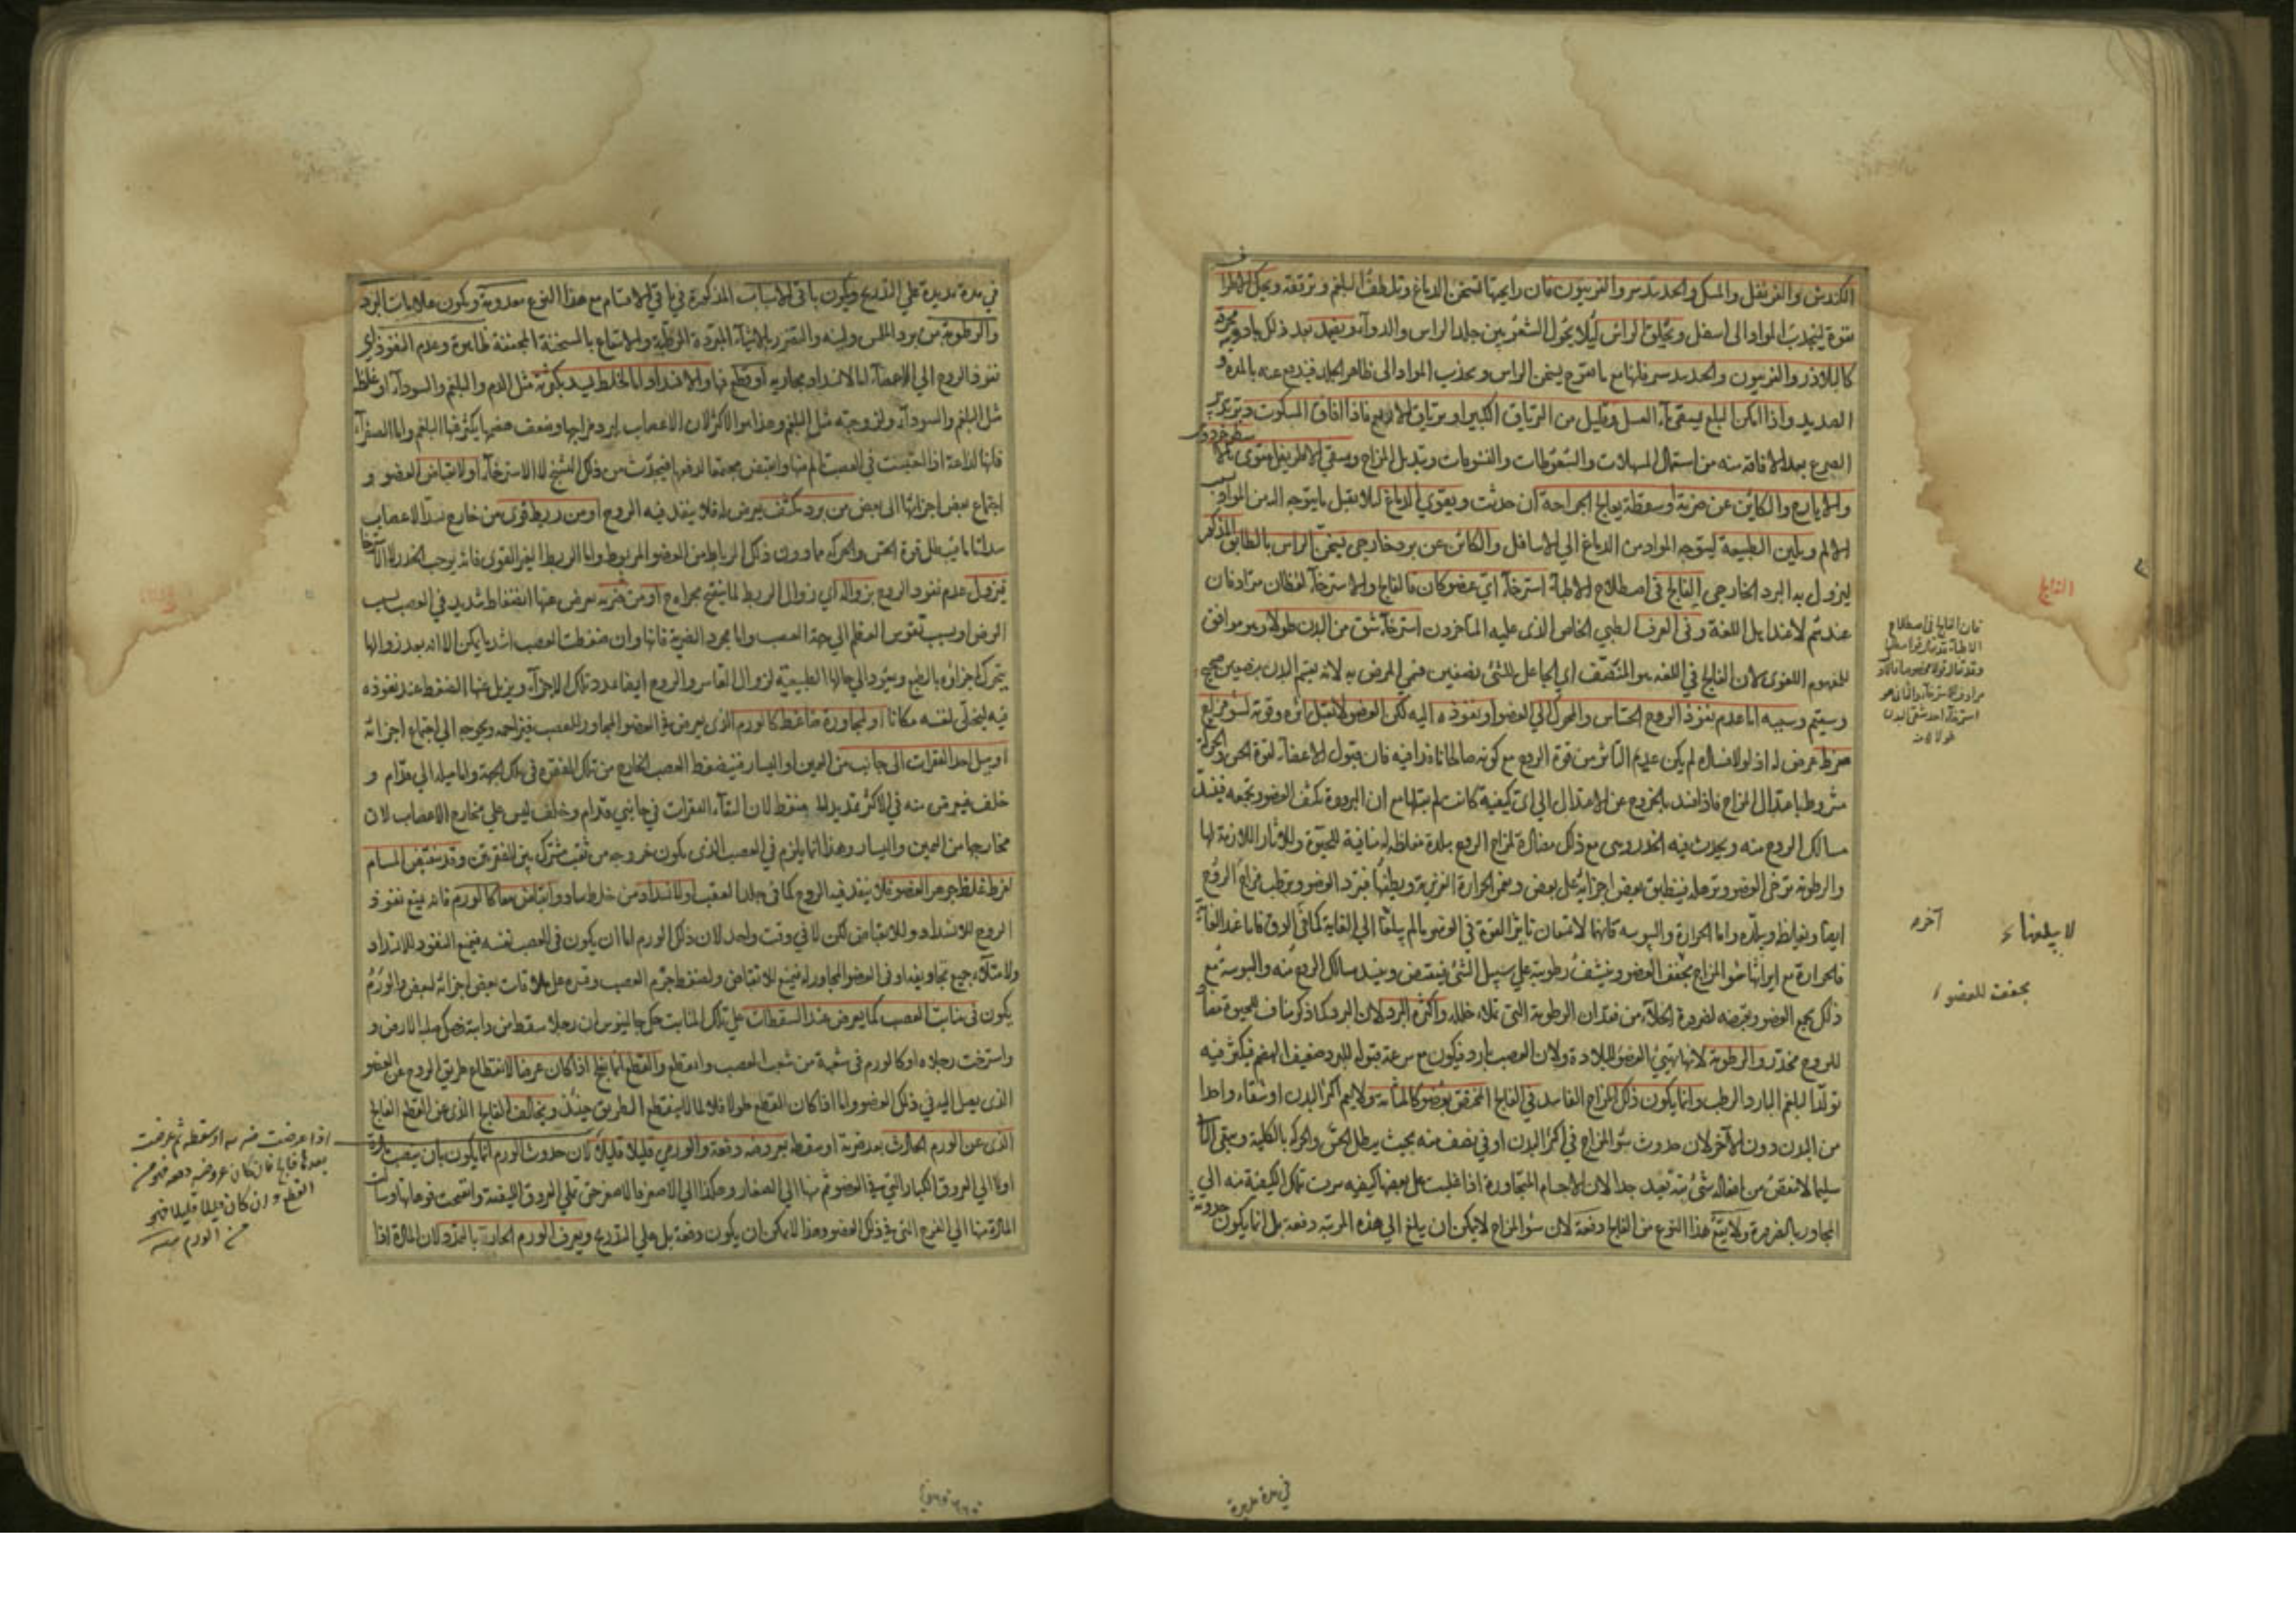 الكندش والقرنفل والمسك والجندبيدستر والفربيون فان رايحتها تسخن الدماغ وتلطف البلغم وترققه
لتجذب المواد الى اسفل ويحلق الراس ليلا يحول الشعر بين جلد الراس والدوآء ويضمد بعد ذلك بادوية
كالبلاذر والفربيون والجندبيدستر فانها مع ما تسخن الراس وتجذب المواد الى ظاهر الجلد فيندفع عنه بالمدة و
الصديد واذا امكن البلع يسقى مآء العسل وقليل من الترياق الكبير او ترياق الاربع فاذا افاق المسكوت
الصرع بعد الافاقة منه من استعمال المسهلات والسعوطات والنشوقات وتبديل المزاج وسقي الاطريفل
والايارج والكاين عن ضربة او سقطة يعالج الجراحة ان حدثت ويقوي الدماغ ليلا يقبل ما يتوجه اليه من المواد
الالم ويلين الطبيعة ليتوجه المواد من الدماغ الي الاسافل والكائن عن برد خارجي يسخن الراس بالطابق المذكور
ليزول به البرد الخارجي الفالج في اصطلاح الاطبآء استرخآء اي عضو كان فالفالج والاسترخآء لفظان مترادفان
عندهم لا عند اهل اللغة وفى العرف الطبي الخاص الذى عليه المتاخرون استرخآء شق من البدن طولا وهو موافق
للمفهوم اللغوى لان الفالج في اللغه هو المنصف اي الجاعل للشئ نصفين فسمي المرض به لانه يقسم البدن بنصفين صحيح
وسقيم وسببه اما عدم نفوذ الروح الحساس والمحرك الي العضو او نفوذه اليه لكن العضو لا يقبل اثره وقوته لسوء مزاج
مفرط عرض له اذ لولا فساده لم يكن عديم التاثر من قوة الروح مع كونه صالحا نافذا فيه فان قبول الاعضآء لقوة الحس والحركة
مشروط باعتدال المزاج فاذا فسد بالخروج عن الاعتدال الي اي كيفية كانت لم يقبلها مع ان البرودة تكثف العضو وتجمعه فينسد
مسالك الروح منه ويحدث فيه الخدر وهى مع ذلك مضادة لمزاج الروح مبلدة مغلظة له منافية للحيوة وللاثار اللازمة لها
والرطوبة ترخي العضو وترهله فينطبق بعض اجزائه على بعض وتغمر الحرارة الغريزية وتطفئها فتبرد العضو وترطب مزاج الروح
ايضا وتغلظه وتبلده واما الحرارة واليبوسة فانهما لا تمنعان تاثير القوة في العضو ما لم يبلغا الي الغاية كما في الدق فاما عند الغاية
فالحرارة مع ايراثها سوء المزاج تجفف العضو وتنشف رطوبته على سبيل الشئ فينقبض وينسد مسالك الروح منه واليبوسة مع
ذلك تجمع العضو وتقبضه لضرورة الخلآء من فقدان الرطوبة التى تملآء خلله واكثره البرد لان البرد كما ذكرنا مناف للحيوة
للروح مخدر والرطوبة لانها تهيئ العضو للبلادة ولان العصب بارد فيكون مع سرعة قبوله للبرد ضعيف الهضم فيكثر فيه
تولد البلغم البارد الرطب وانما يكون ذلك المزاج الفاسد في الفالج المختص بعضو كالمثانه ولا يعم اكثر البدن او شقاء واحدا
من البدن دون الآخر لان حدوث سوء المزاج في اكثر البدن او في نصف منه بحيث يبطل الحس والحركة بالكلية ويبقى
سليما لا تنقص من افعاله شئ بتة بعيد جدا لان الاجسام المتجاورة اذا غلبت على بعضها كيفيه سرت تلك الكيفية منه الي
المجاور بالضرورة ولا يقع هذا النوع من الفالج دفعة لان سوء المزاج لا يمكن ان يبلغ الي هذه المرتبة دفعة بل انما يكون حدوثه
الفالج
فان الفالج فى اصطلاح
استرخآء احد شقى البدن
طولا
لا يبلغهما
آخره
يجفف العضو
في مدة مديدة
في مدة مديدة علي التدريج ويكون باقي الاسباب المذكورة في باقي الاقسام مع هذا النوع معدومة ويكون علامات البرد
والرطوبة من برد الملمس ولينه والتضرر بالاشيآء المبردة المرطبة والانتفاع بالمسخنة المجففة ظاهرة وعدم النفوذ اي
نفوذ الروح الي الاعضآء اما لانسداد مجاريه او قطع فيها والانسداد اما لخلط يسد بكثرته مثل الدم والبلغم والسودآء او غلظه
مثل البلغم والسودآء ولزوجته مثل البلغم وهذا هو الاكثر لان الاعصاب لبرد مزاجها وضعف هضمها يكثر فيها البلغم واما الصفرآء
فانها لذاعة اذا احتبست في العصب تالم منها وانقبض مجتمعا لدفعها فيحدث من ذلك التشنج لا الاسترخآء او لانقباض العضو و
اجتماع بعض اجزائها الى بعض من برد مكثف يعرض له فلا ينفذ فيه الروح او من ربط قوى من خارج يسد الاعصاب
سدا تاما يبطل قوة الحس والحركة مما دون ذلك الرباط من العضو المربوط واما الربط الغير القوى فانه يوجب الخدر لا الاسترخآ
فيزول عدم نفوذ الروح بزواله اي زوال الربط لما ينفتح مجراه او من ضربة يعرض عنها انضغاط شديد في العصب بسبب
الرض او بسبب تقويس العظم الي جهة العصب واما مجرد الضربة فانها وان ضغطت العصب اشد ما يمكن الا انه بعد زوالها
يتحرك اجزاؤه بالطبع ويعود الي حالها الطبيعية لزوال القاسر والروح ايضا عدد تلك الاجزآء ويزيل عنها الضغط عند نفوذه
فيه ليخلى لنفسه مكانا او لمجاورة ضاغط كالورم الذى يعرض في العضو المجاور للعصب فيزاحمه ويحوجه الي اجتماع اجزائه
او ميل احد الفقرات الى جانب من اليمين او اليسار فينضغط العصب الخارج من تلك الفقرة في تلك الجهة واما ميله الي قدام و
خلف فيعرض منه في الاكثر تمديد لا ضغط لان التقآء الفقرات في جانبي قدام وخلف ليس على مخارج الاعصاب لان
مخارجها من اليمين واليسار وهذا انما يلزم في العصب الذى يكون خروجه من ثقب مشترك بين الفقرتين وقد ينقبض المسام
لفرط غلظ جوهر العضو فلا ينفذ فيه الروح كما في جلد العقب او لانسداد من خلط ساد وانقباض معا كالورم فانه يمنع نفوذ
الروح للانسداد وللانقباض لكن لا في وقت واحد لان ذلك الورم اما ان يكون فى العصب نفسه فيمنع النفوذ للانسداد
ولامتلآء جميع تجاويفه او فى العضو المجاور له فيمنع للانقباض ولضغط جرم العصب وقسره على ملاقات بعض اجزائه لبعض والورم
يكون فى منابت العصب كما يعرض عند السقطات على تلك المنابت حكى جالينوس ان رجلا سقط من دابته فصك صلبه الارض و
واسترخت رجلاه او كالورم في شعبة من شعب العصب وانقطع والقطع انما يفلج اذا كان عرضا لانقطاع طريق الروح عن العضو
الذى يصل اليه في ذلك العضو واما اذا كان القطع طولا فلا لما لا ينقطع الطريق حينئذ ويخالف الفالج الذى عن القطع الفالج
الذى عن الورم الحادث بعد ضربة او سقطة بعروضه دفعة والورمي قليلا قليلا لان حدوث الورم انما يكون بان ينصب
اولا الي العروق الكبار التى في العضو ثم منها الي الصغار وهكذا الي الاصغر فالاصغر حتى تمتلي العروق الليفية وانفتحت فوهاتها وسالت
المادة منها الي الفرج التى في ذلك العضو وهذا لا يمكن ان يكون دفعة بل علي التدريج ويعرف الورم الحار بالتمدد لان المادة اذا
اذا عرضت ضربة او سقطة ثم عرضت
بعدها فالج فان كان عروضه دفعة فهو من
القطع وان كان قليلا قليلا فهو
من الورم